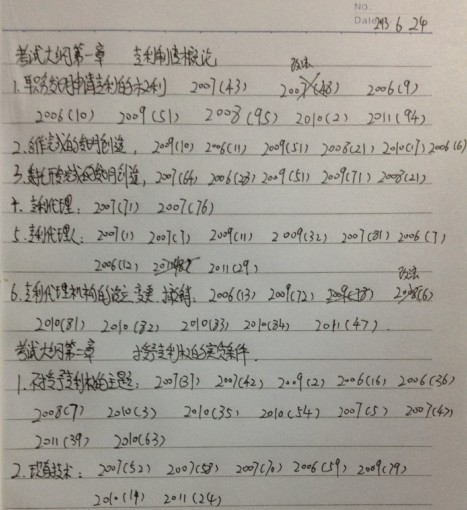 No.
Date 2013 6 24
考试大纲第一章 专利制度概论
改法
1. 职务发明申请专利的权利 2007(43) 2007(48) 2006(9)
2006(10) 2009(51) 2008(95) 2010(2) 2011(94)
2. 合作完成的发明创造, 2009(10) 2006(11) 2009(51) 2008(21) 2010(17) 2006(6)
3. 委托开发完成的发明创造, 2007(64) 2006(28) 2009(51) 2009(71) 2008(21)
4. 专利代理: 2007(71) 2007(76)
5. 专利代理人: 2007(1) 2007(7) 2009(11) 2009(32) 2007(81) 2006(7)
2006(12) 2011(29)
改法
6. 专利代理机构的设立 变更 撤销: 2006(13) 2009(72) 2009(78) 2008(6)
2010(81) 2010(82) 2010(83) 2010(84) 2011(47)
考试大纲第二章 授予专利权的实质条件.
1. 不授予专利权的主题: 2007(37) 2007(42) 2009(2) 2006(16) 2006(36)
2008(7) 2010(3) 2010(35) 2010(54) 2007(5) 2007(47)
2011(39) 2010(63)
2. 现有技术: 2007(52) 2007(58) 2007(70) 2006(59) 2009(79)
2010(19) 2011(24)